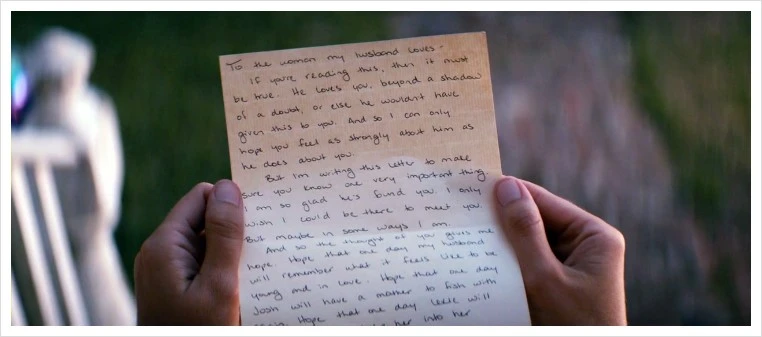 To the woman my husband loves-
If you're reading this, then it must
be true. He loves you, beyond a shadow
of a doubt, or else he wouldn't have
given this to you. And so I can only
hope you feel as strongly about him as
he does about you.
But I'm writing this letter to make
sure you know one very important thing.
I am so glad he's found you. I only
wish I could be there to meet you.
But maybe in some ways I am.
And so the thought of you gives me
hope. Hope that one day my husband
will remember what it feels like to be
young and in love. Hope that one day
Josh will have a mother to fish with
Hope that one day Lexie will
her into her